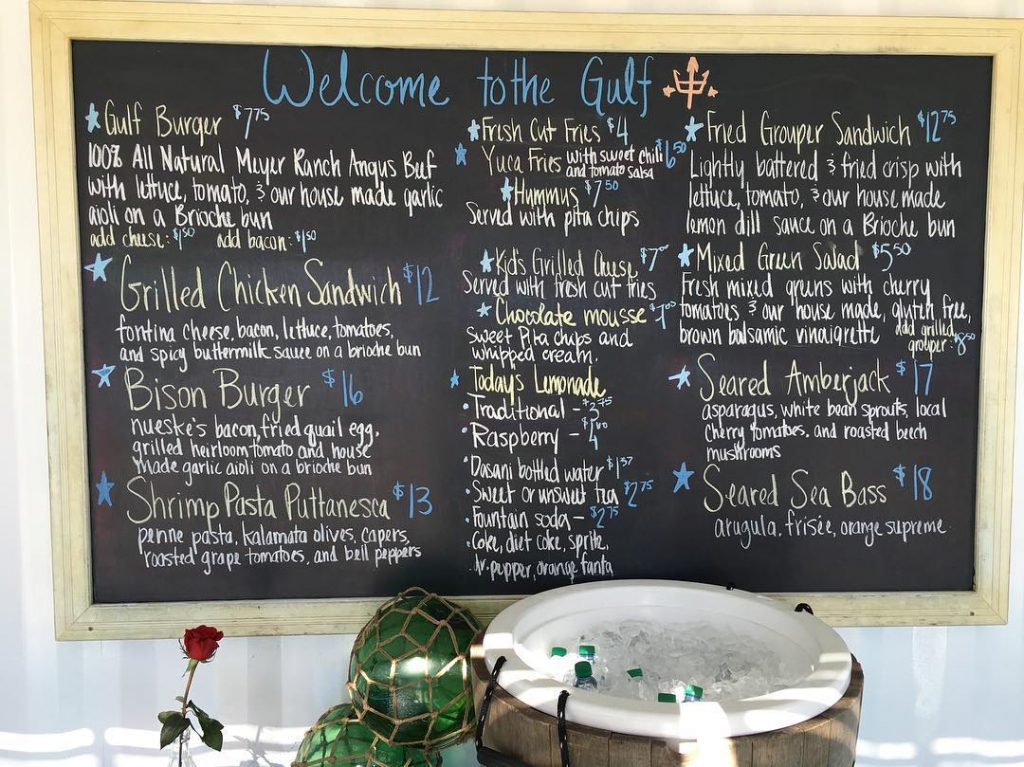 Welcome to the Gulf
Gulf Burger $7.75
100% All Natural Meyer Ranch Angus Beef
with lettuce, tomato, & our house made garlic
aioli on a Brioche bun
add cheese: $1.50 add bacon: $1.50
Grilled Chicken Sandwich $12
fontina cheese, bacon, lettuce, tomatoes,
and spicy buttermilk sauce on a brioche bun
Bison Burger $16
nueske's bacon, fried quail egg,
grilled heirloom tomato and house
made garlic aioli on a brioche bun
Shrimp Pasta Puttanesca $13
penne pasta, kalamata olives, capers,
roasted grape tomatoes, and bell peppers
Fresh Cut Fries $4
Yuca Fries with sweet chili $6.50
and tomato salsa
Hummus $7.50
Served with pita chips
Kid's Grilled Cheese $7.00
Served with fresh cut fries
Chocolate mousse $7.00
Sweet Pita chips and
whipped cream.
Today's Lemonade
• Traditional - $3.75
• Raspberry - $4
• Dasani bottled water $1.37
• Sweet or unsweet tea $2.75
• Fountain soda - $2.75
• Coke, diet coke, sprite,
dr. pepper, orange fanta
Fried Grouper Sandwich $12.75
Lightly battered & fried crisp with
lettuce, tomato, & our house made
lemon dill sauce on a Brioche bun
Mixed Green Salad $5.50
Fresh mixed greens with cherry
tomatoes & our house made, gluten free,
brown balsamic vinaigrette add grilled
grouper: $8.50
Seared Amberjack $17
asparagus, white bean sprouts, local
cherry tomatoes, and roasted beech
mushrooms
Seared Sea Bass $18
arugula, frisée, orange supreme